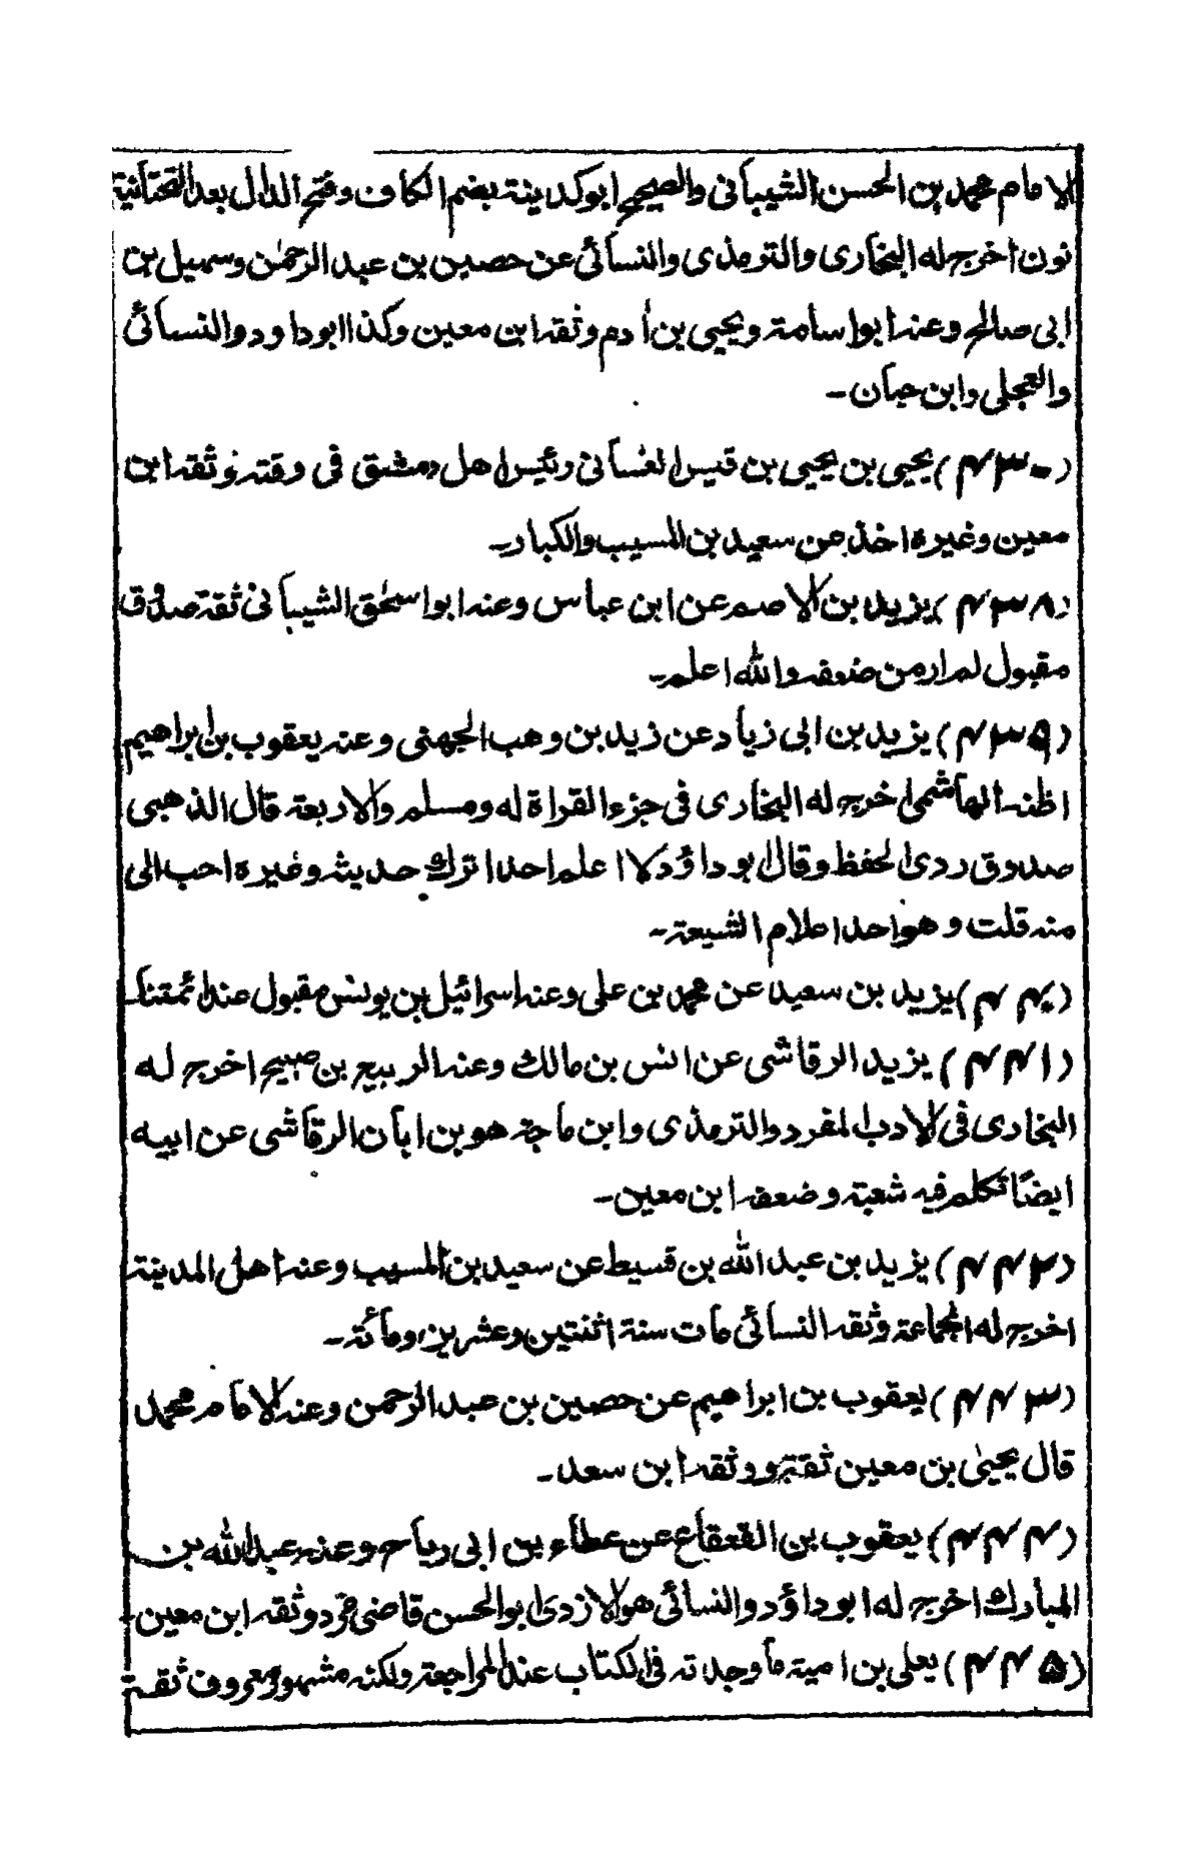 الامام محمد بن الحسن الشیبانی والصحیح ابوکدینة بضم الکاف وفتح الدال بعد التحتانیة
نون اخرج له البخاری والترمذی والنسائی عن حصین بن عبد الرحمٰن وسہیل بن
ابی صالح وعنه ابواسامة ویحیی بن اٰدم وثقه ابن معین وکذا ابوداود والنسائی
والعجلی وابن حبان۔
(۴۳۰) یحیی بن یحیی بن قیس الغسانی رئیس اهل دمشق فی وقته وثقه ابن
معین وغیره اخذ عن سعید بن المسیب والکبار۔
(۴۳۸) یزید بن الاصم عن ابن عباس وعنه ابواسحٰق الشیبانی ثقة صدوق
مقبول لم ار من ضعفه والله اعلم۔
(۴۳۹) یزید بن ابی زیاد عن زید بن وهب الجهنی وعنه یعقوب بن ابراهیم
اظنه الهاشمی اخرج له البخاری فی جزء القراة له ومسلم والاربعة قال الذهبی
صدوق ردی الحفظ وقال ابوداؤد لا اعلم احدا ترك حدیثه وغیره احب الی
منه قلت وهو احد اعلام الشیعة۔
(۴۴۰) یزید بن سعید عن محمد بن علی وعنه اسرائیل بن یونس مقبول عند ائمتنا
(۴۴۱) یزید الرقاشی عن انس بن مالك وعنه الربیع بن صبیح اخرج له
البخاری فی الادب المفرد والترمذی وابن ماجة هو بن ابان الرقاشی عن ابیه
ایضًا تکلم فیه شعبة وضعفه ابن معین۔
(۴۴۲) یزید بن عبد الله بن قسیط عن سعید بن المسیب وعنه اهل المدینة
اخرج له الجماعة وثقه النسائی مات سنة اثنتین وعشرین ومائة۔
(۴۴۳) یعقوب بن ابراهیم عن حصین بن عبد الرحمن وعنه الامام محمد
قال یحییٰ بن معین ثقة ووثقه ابن سعد۔
(۴۴۴) یعقوب بن القعقاع عن عطاء بن ابی ریاح وعنه عبد الله بن
المبارك اخرج له ابوداؤد والنسائی هو الازدی ابو الحسن قاضی مرو وثقه ابن معین۔
(۴۴۵) یعلی بن امیة ما وجدته فی الکتاب عند المراجعة ولکنه مشهور معروف ثقة